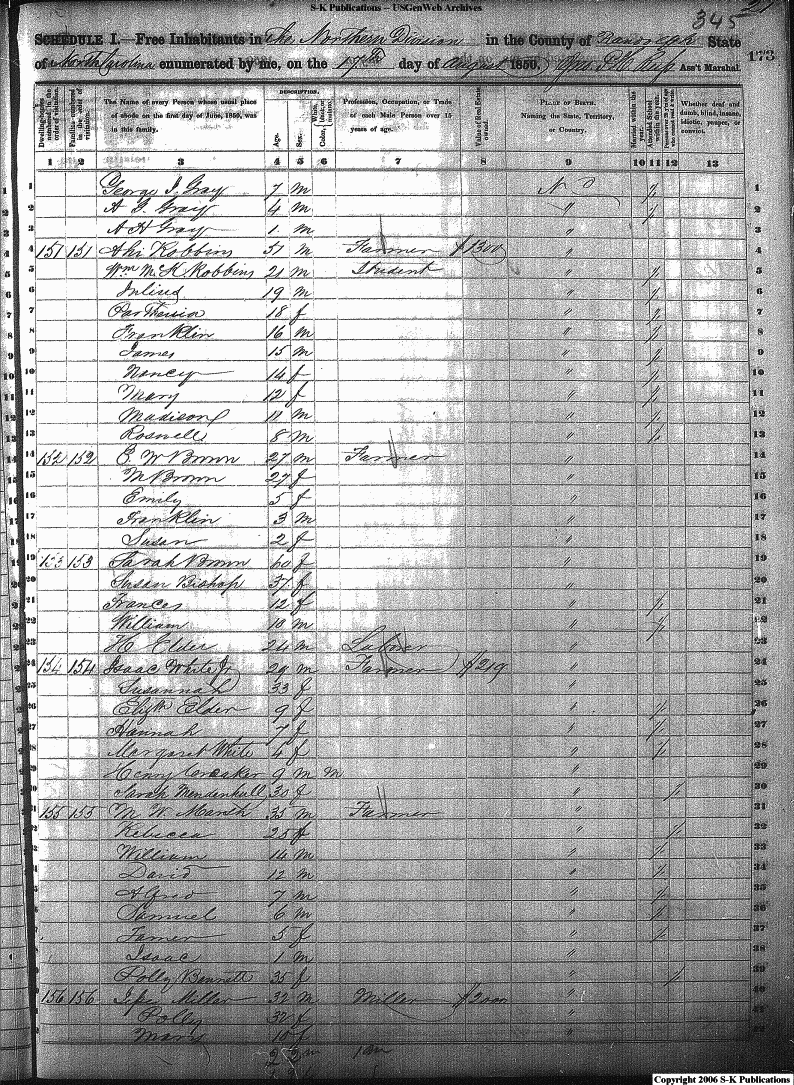 S-K Publications – USGenWeb Archives
345
SCHEDULE I.—Free Inhabitants in the Northern Division in the County of Randolph State
of North Carolina enumerated by me, on the 17th day of August 1850. Ass't Marshal. 173
DESCRIPTION.
Dwelling-houses numbered in the order of visitation.
Families numbered in the order of visitation.
The Name of every Person whose usual place of abode on the first day of June, 1850, was in this family.
Age.
Sex.
Color,
Profession, Occupation, or Trade of each Male Person over 15 years of age.
Value of Real Estate owned.
PLACE OF BIRTH. Naming the State, Territory, or Country.
Married within the year.
Attended School within the year.
Whether deaf and dumb, blind, insane, idiotic, pauper, or convict.
1 2 3 4 5 6 7 8 9 10 11 12 13
1 George I. Gray 7 m N C 1
2 A G. Gray 4 m " 2
3 A H Gray 1 m " 3
4 151 151 Ahi Robbins 51 m Farmer $1300 " 4
5 Wm M. K Robbins 21 m Student " 5
6 19 m " 6
7 Parthenia 18 f " 7
8 Franklin 16 m " 8
9 James 15 m " 9
10 Nancy 14 f " 10
11 Mary 12 f " 11
12 Madison 11 m " 12
13 Roswell 8 m " 13
14 152 152 E W Brown 27 m Farmer " 14
15 M Brown 27 f " 15
16 Emily 5 f " 16
17 Franklin 3 m " 17
18 Susan 2 f " 18
19 153 153 Sarah Brown 60 f " 19
20 Susan Bishop 37 f " 20
21 Frances 12 f " 21
22 William 10 m " 22
23 H Elder 24 m Laborer " 23
24 154 154 Isaac White Jr 29 m Farmer $219 " 24
25 Susannah 33 f " 25
26 Elizth Elder 9 f " 26
27 Hannah 7 f " 27
28 Margaret White 4 f " 28
29 Henry 9 m m " 29
30 Sarah Mendenhall 30 f " 30
31 155 155 M W. Marsh 35 m Farmer " 31
32 Rebecca 25 f " 32
33 William 14 m " 33
34 David 12 m " 34
35 Alfred 7 m " 35
36 Samuel 6 m " 36
37 Tamer 5 f " 37
38 Isaac 1 m " 38
39 Polly Bennett 35 f " 39
40 156 156 Miller 32 m Miller $2000 "
Polly 32 f "
Mary 10 f "
Copyright 2006 S-K Publications